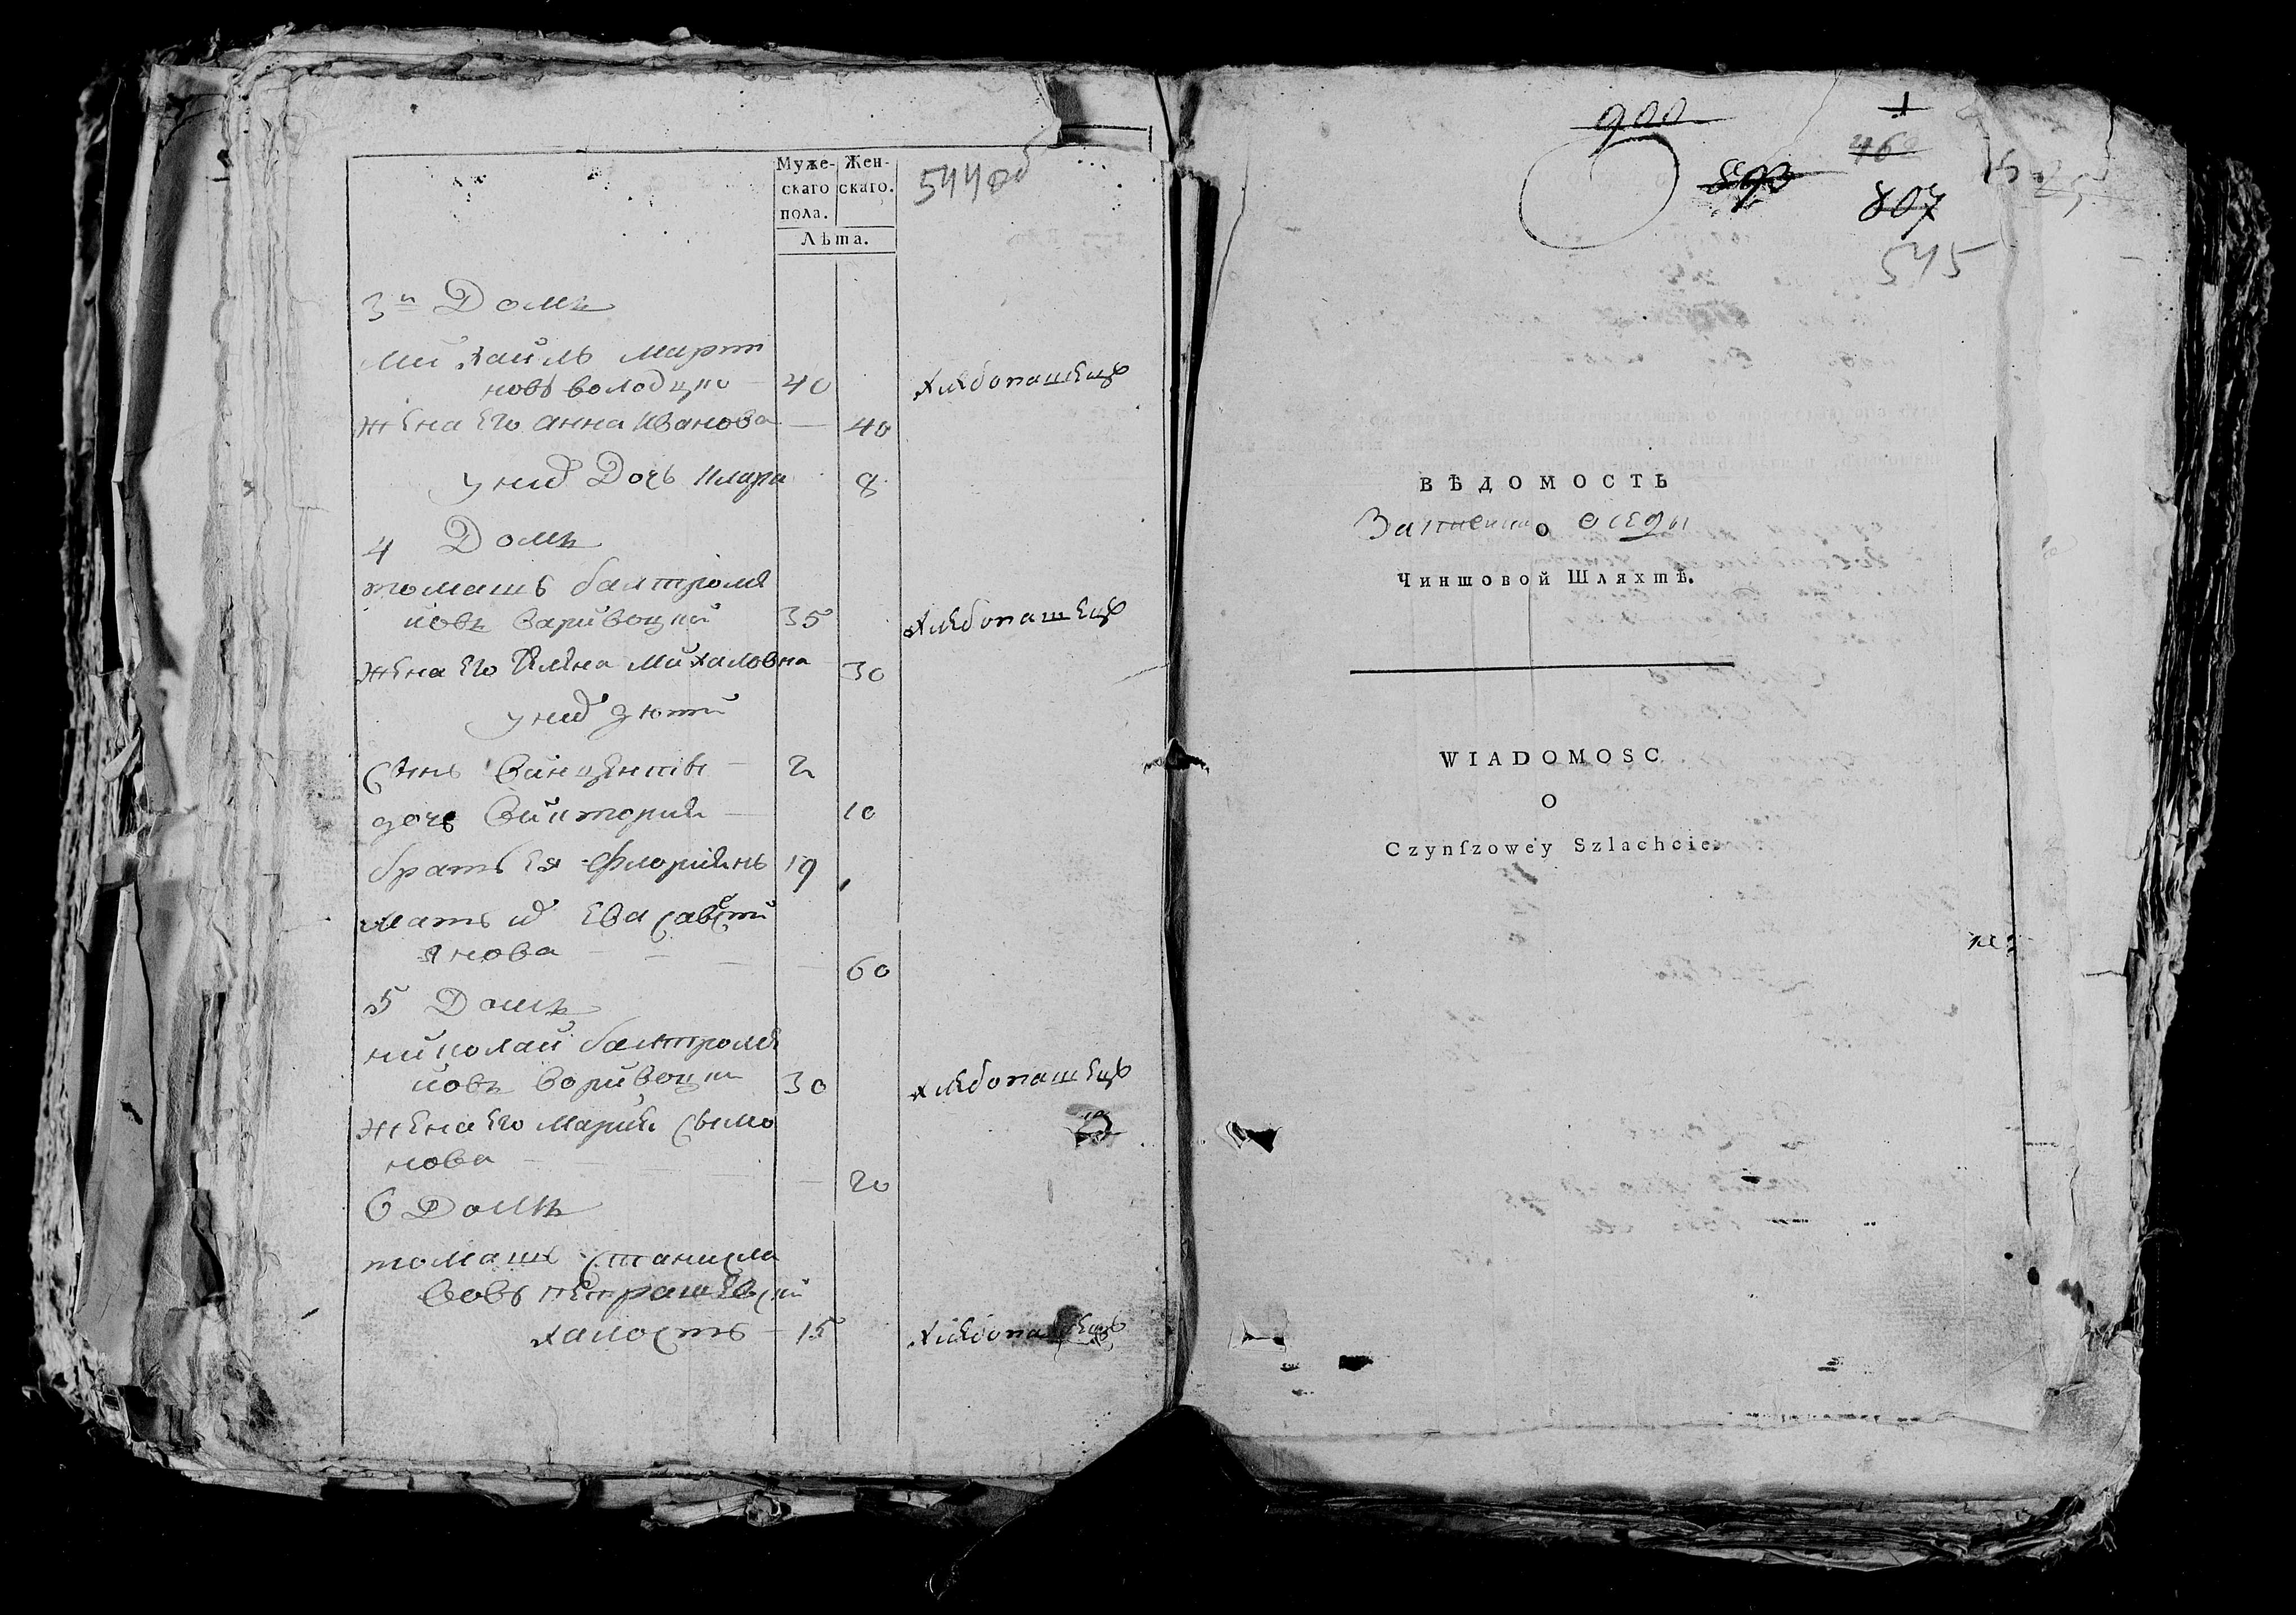 Муже- Жен-
скаго скаго.
пола.
Лѣта.
544об
3й Домъ
Михаиль Марти
новъ володцко 40 хлебопашецъ
жена его анна Иванова 40
у них Дочь Клара 8
4 Домъ
томашъ балтроме
иовъ Варивоцки 35 хлебопашецъ
жена его Елена Михаловна 30
у них дети
сынъ Винцентъ 2
дочь Виктория 10
братъ Ея Флориянъ 19
мать их Ева савости
янова 60
5 Домъ
николаи балтроме
иовъ Воривоцки 30 хлебопашецъ
жена его Мария сымо
нова 20
6 Домъ
томашъ станисла
вовъ петрашевски
халостъ 15 хлебопашецъ
900
468
893
807
545
ВѢДОМОСТЬ
О оседы
Чиншовой Шляхтѣ.
WIADOMOSC
O
Czynſzowey Szlachcie.